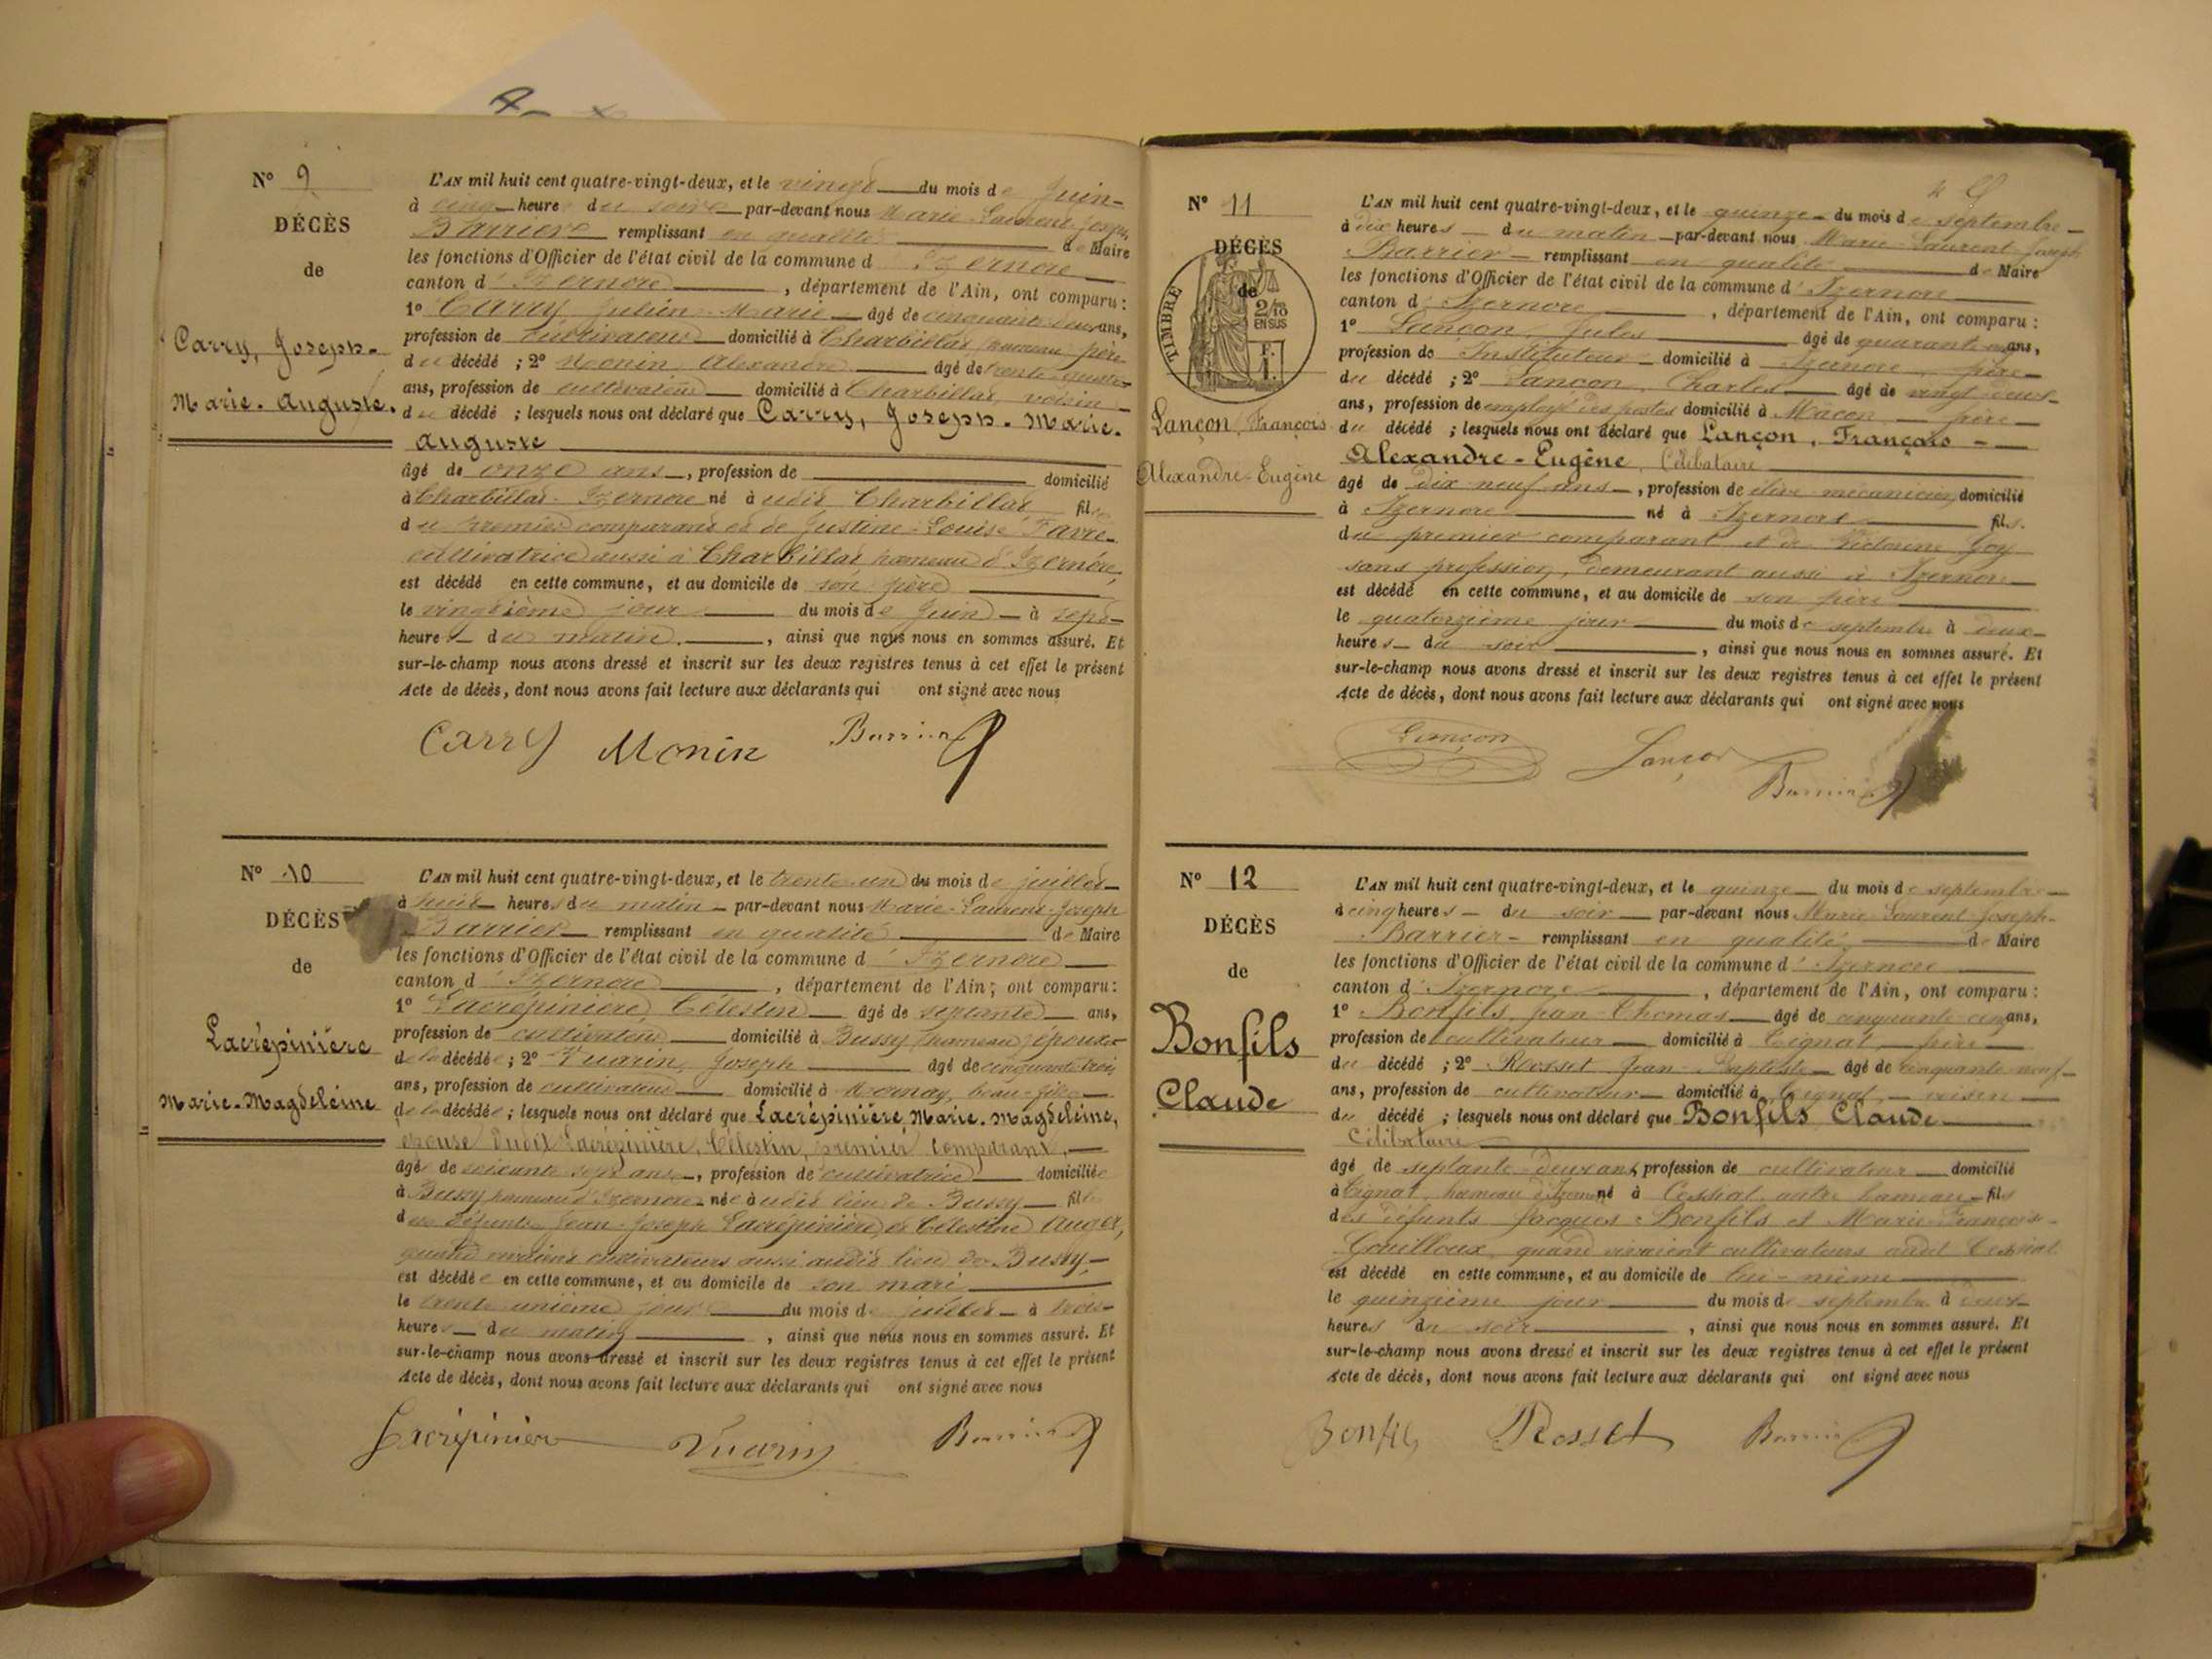 Nº 9
DÉCÈS
de
Carry, Joseph-
Marie-Auguste.
L'AN mil huit cent quatre-vingt-deux, et le vingt du mois de Juin
à cinq heures du soir par-devant nous Marie-Laurent-Joseph
Barrier remplissant en qualité de Maire
les fonctions d'Officier de l'état civil de la commune d'Izernore
canton d'Izernore, département de l'Ain, ont comparu:
1º Carry Julien Marie âgé de cinquante deux ans,
profession de cultivateur domicilié à Charbillat, hameau père
du décédé; 2º Monin Alexandre âgé de trente quatre
ans, profession de cultivateur domicilié à Charbillat, voisin
du décédé; lesquels nous ont déclaré que Carry, Joseph-Marie-
Auguste
âgé de onze ans, profession de domicilié
à Charbillat-Izernore né à udit Charbillat fils
du premier comparant et de Justine-Louise Favre
cultivatrice aussi à Charbillat hameau d'Izernore,
est décédé en cette commune, et au domicile de son père
le vingtième jour du mois de Juin à sept
heures du matin, ainsi que nous nous en sommes assuré. Et
sur-le-champ nous avons dressé et inscrit sur les deux registres tenus à cet effet le présent
Acte de décès, dont nous avons fait lecture aux déclarants qui ont signé avec nous
Carry Monin Barrier
Nº 10
DÉCÈS
de
Lacrépinière
Marie-Magdeleine
L'AN mil huit cent quatre-vingt-deux, et le trente-un du mois de juillet
à huit heures du matin par-devant nous Marie-Laurent-Joseph
Barrier remplissant en qualité de Maire
les fonctions d'Officier de l'état civil de la commune d'Izernore
canton d'Izernore, département de l'Ain; ont comparu:
1º Lacrépinière Célestin âgé de septante ans,
profession de cultivateur domicilié à Bussy, hameau, époux
de la décédée; 2º Vuarin, Joseph âgé de cinquante trois
ans, profession de cultivateur domicilié à Mornay, beau-frère
de la décédée; lesquels nous ont déclaré que Lacrépinière, Marie-Magdeleine,
épouse dudit Lacrépinière, Célestin, premier comparant,
âgée de soixante sept ans, profession de cultivatrice domiciliée
à Bussy hameau d'Izernore née audit lieu de Bussy fille
des défunts Jean-Joseph Lacrépinière, et Célestine Auger,
quand vivaient cultivateurs aussi audit lieu de Bussy
est décédée en cette commune, et au domicile de son mari
le trente unième jour du mois de juillet à trois
heures du matin, ainsi que nous nous en sommes assuré. Et
sur-le-champ nous avons dressé et inscrit sur les deux registres tenus à cet effet le présent
Acte de décès, dont nous avons fait lecture aux déclarants qui ont signé avec nous
Lacrépinière Vuarin Barrier
Nº 11
DÉCÈS
de
TIMBRE
2/10
EN SUS
Lançon, François
Alexandre-Eugène
L'AN mil huit cent quatre-vingt-deux, et le quinze du mois de septembre
à dix heures du matin par-devant nous Marie-Laurent-Joseph
Barrier remplissant en qualité de Maire
les fonctions d'Officier de l'état civil de la commune d'Izernore
canton d'Izernore, département de l'Ain, ont comparu:
1º Lançon, Jules âgé de quarante ans,
profession de Instituteur domicilié à Izernore, père
du décédé; 2º Lançon, Charles âgé de vingt-deux
ans, profession de employé des postes domicilié à Macon, frère
du décédé; lesquels nous ont déclaré que Lançon, François
Alexandre-Eugène, Célibataire
âgé de dix neuf ans, profession de élève mécanicien domicilié
à Izernore né à Izernore fils
du premier comparant et de Victorine Goy
sans profession, demeurant aussi à Izernore
est décédé en cette commune, et au domicile de son père
le quatorzième jour du mois de septembre à deux
heures du soir, ainsi que nous nous en sommes assuré. Et
sur-le-champ nous avons dressé et inscrit sur les deux registres tenus à cet effet le présent
Acte de décès, dont nous avons fait lecture aux déclarants qui ont signé avec nous
Lançon Lançon
Barrier
Nº 12
DÉCÈS
de
Bonfils
Claude
L'AN mil huit cent quatre-vingt-deux, et le quinze du mois de septembre
à cinq heures du soir par-devant nous Marie-Laurent-Joseph
Barrier remplissant en qualité de Maire
les fonctions d'Officier de l'état civil de la commune d'Izernore
canton d'Izernore, département de l'Ain, ont comparu:
1º Bonfils, Jean-Thomas âgé de cinquante cinq ans,
profession de cultivateur domicilié à Tignat, frère
du décédé; 2º Rosset Jean-Baptiste âgé de cinquante-neuf
ans, profession de cultivateur domicilié à Tignat, voisin
du décédé; lesquels nous ont déclaré que Bonfils Claude
Célibataire
âgé de septante-deux ans, profession de cultivateur domicilié
à Tignat, hameau d'Izernore né à Cessiat, autre hameau fils
des défunts Jacques Bonfils et Marie-Françoise
Gouilloux, quand vivaient cultivateurs audit Cessiat
est décédé en cette commune, et au domicile de lui-même
le quinzième jour du mois de septembre à deux
heures du soir, ainsi que nous nous en sommes assuré. Et
sur-le-champ nous avons dressé et inscrit sur les deux registres tenus à cet effet le présent
Acte de décès, dont nous avons fait lecture aux déclarants qui ont signé avec nous
Bonfils Rosset Barrier